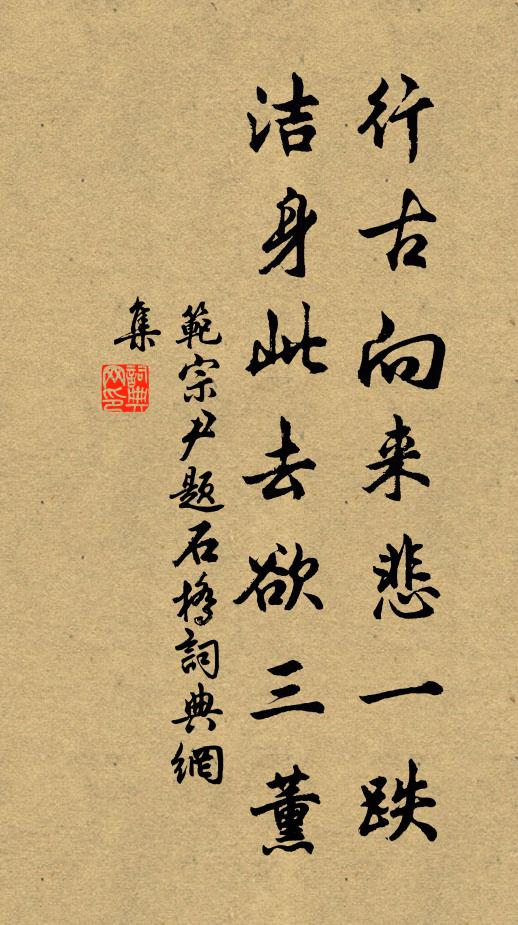 行古向来悲一跌
洁身此去欲三薰
範宗尹题石橋詞典網
集
詞典网印